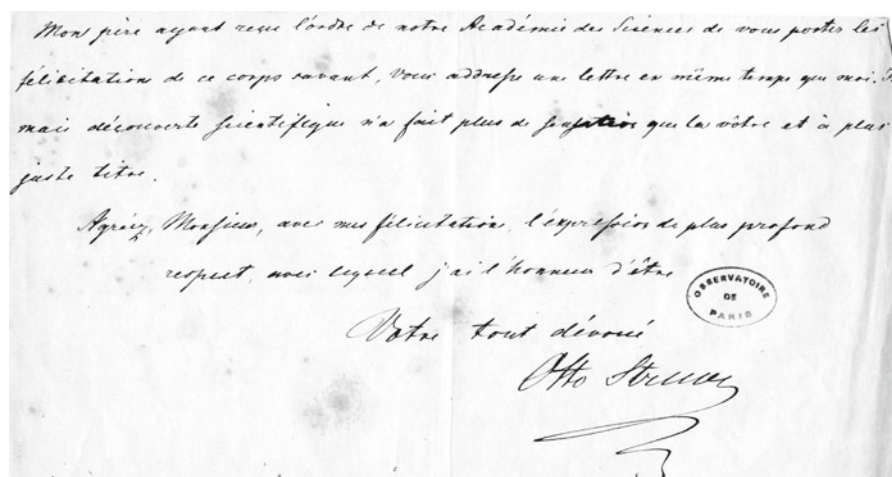 Mon père ayant reçu l'ordre de notre Académie des Sciences de vous porter les
félicitations de ce corps savant, vous addresse une lettre en même temps que moi. Ja
mais découverte scientifique n'a fait plus de sensation que la vôtre et à plus
juste titre.
Agréez, Monsieur, avec mes félicitations, l'expression de plus profond
respect, avec lequel j'ai l'honneur d'être
Votre tout dévoué
OBSERVATOIRE
DE
PARIS
Otto Struve